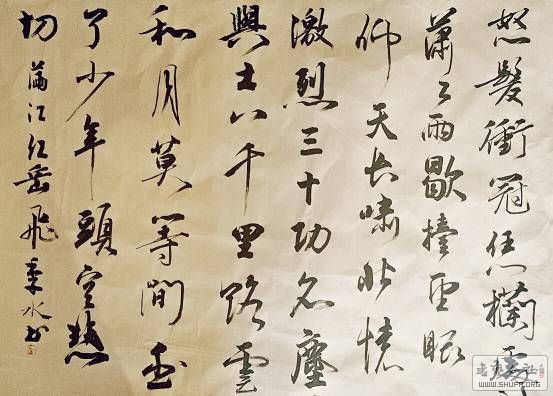 怒髮衝冠凭欄處
蕭々雨歇擡望眼
仰天長嘯壯懷
激烈三十功名塵
與土八千里路雲
和月莫等閒白
了少年頭空悲
切 滿江红岳飛 季水书
WWW.SHUFA.ORG